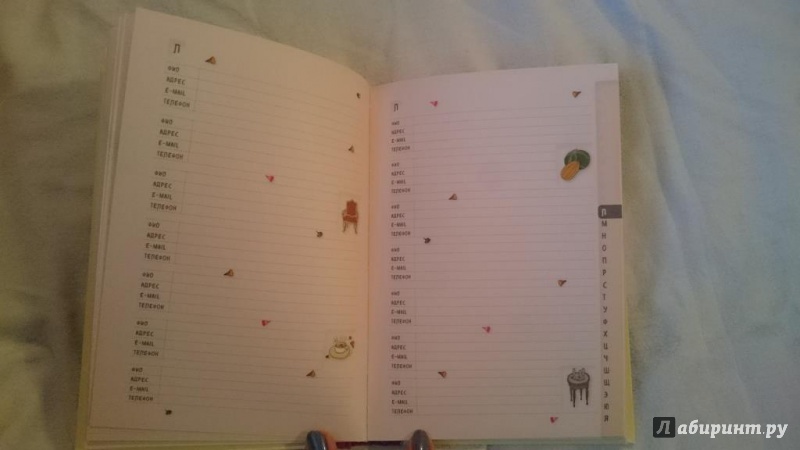 Л
ФИО
АДРЕС
E-MAIL
ТЕЛЕФОН
ФИО
АДРЕС
E-MAIL
ТЕЛЕФОН
ФИО
АДРЕС
E-MAIL
ТЕЛЕФОН
ФИО
АДРЕС
E-MAIL
ТЕЛЕФОН
ФИО
АДРЕС
E-MAIL
ТЕЛЕФОН
ФИО
АДРЕС
E-MAIL
ТЕЛЕФОН
ФИО
АДРЕС
E-MAIL
ТЕЛЕФОН
Л
ФИО
АДРЕС
E-MAIL
ТЕЛЕФОН
ФИО
АДРЕС
E-MAIL
ТЕЛЕФОН
ФИО
АДРЕС
E-MAIL
ТЕЛЕФОН
ФИО
АДРЕС
E-MAIL
ТЕЛЕФОН
ФИО
АДРЕС
E-MAIL
ТЕЛЕФОН
ФИО
АДРЕС
E-MAIL
ТЕЛЕФОН
ФИО
АДРЕС
E-MAIL
ТЕЛЕФОН
Л
М
Н
О
П
Р
С
Т
У
Ф
Х
Ц
Ч
Ш
Щ
Э
Ю
Я
Лабиринт.ру